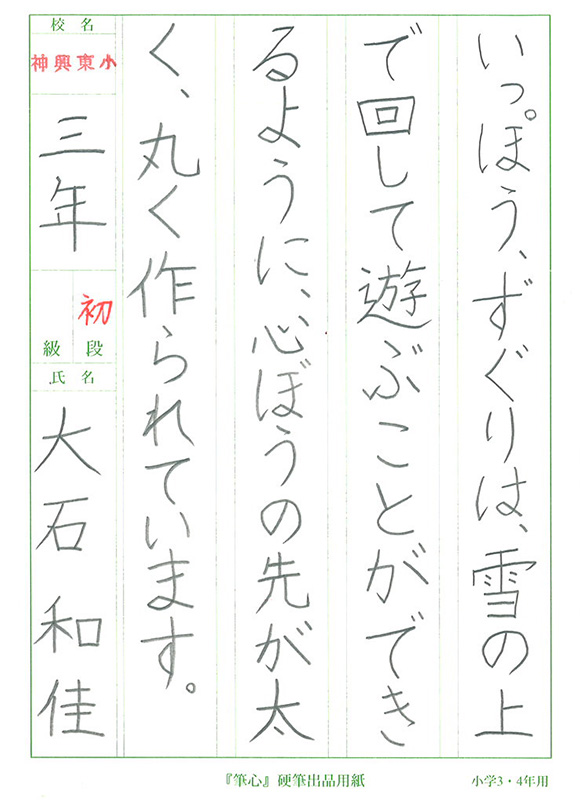 いっぽう、ずぐりは、雪の上
で回して遊ぶことができ
るように、心ぼうの先が太
く、丸く作られています。
校名
神興東小
三年
初
段
級
氏名
大石和佳
『筆心』硬筆出品用紙
小学3・4年用